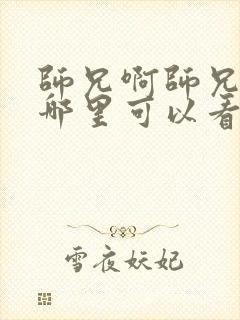 師兄啊師兄
哪里可以看
雪夜妖妃